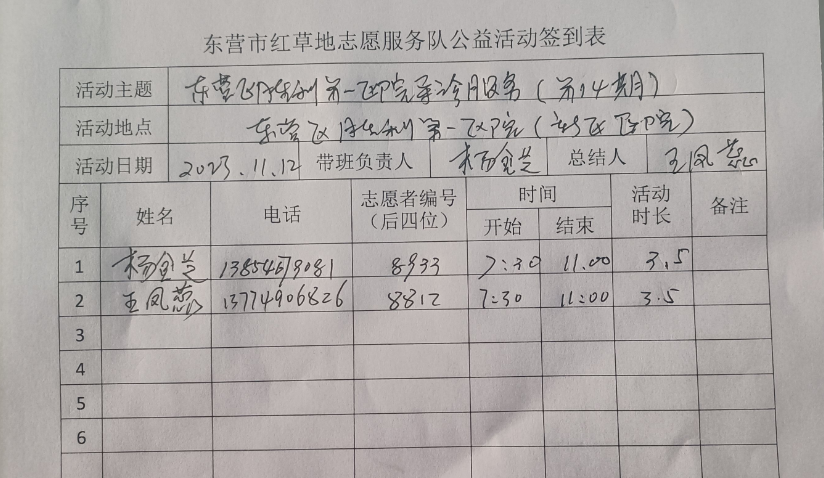 东营市红草地志愿服务队公益活动签到表
活动主题 东营区胜利第一医院导诊服务（第14期）
活动地点 东营区胜利第一医院（新区医院）
活动日期 2023.11.12 带班负责人 杨金芝 总结人 王凤蕊
序号 姓名 电话 志愿者编号（后四位） 时间 开始 结束 活动时长 备注
1 杨金芝 8933 7:30 11.00 3.5
2 王凤蕊 13774906826 8812 7:30 11:00 3.5
3
4
5
6